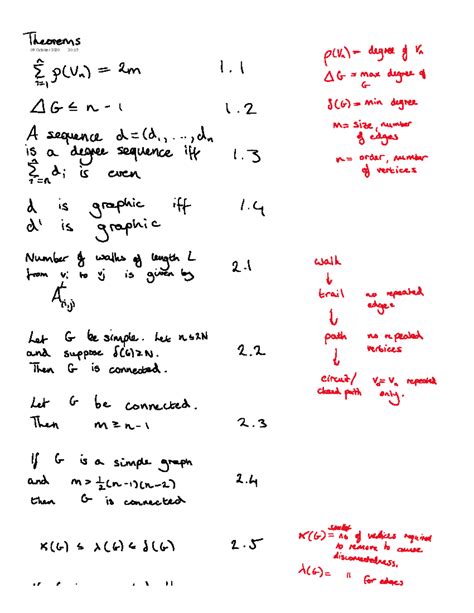 Theorems
09 October 2020 20:15
n
Σ ρ(Vₙ) = 2m 1.1
i=1
ΔG ≤ n - 1 1.2
A sequence d = (d₁, ..., dₙ
is a degree sequence iff 1.3
n
Σ dᵢ is even
i=n
d is graphic iff 1.4
d' is graphic
Number of walks of length L
from vi to vj is given by 2.1
A^L (i,j)
Let G be simple. Let n≤2N
and suppose δ(G)≥N. 2.2
Then G is connected.
Let G be connected.
Then m ≥ n-1 2.3
If G is a simple graph
and m > ½(n-1)(n-2) 2.4
then G is connected
κ(G) ≤ λ(G) ≤ δ(G) 2.5
ρ(Vₙ) = degree of Vₙ
ΔG = max degree of
G
δ(G) = min degree
m = size, number
of edges
n = order, number
of vertices
walk
↓
trail no repeated
edges
↓
path no repeated
vertices
↓
circuit/ V₀=Vₙ repeated
closed path only.
κ(G) = smallest no of vertices required
to remove to cause
disconnectedness.
λ(G) = " for edges